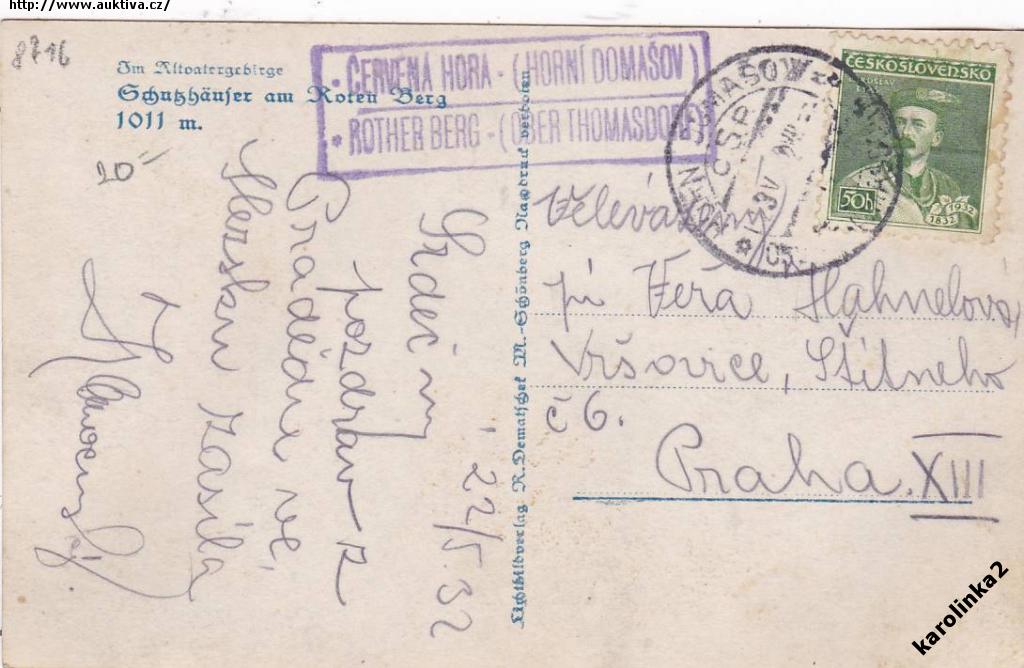 http://www.auktiva.cz/
8716
Im Altvatergebirge
Schutzhäuser am Roten Berg
1011 m.
20
ČERVENÁ HORA - (HORNÍ DOMAŠOV)
ROTHER BERG - (OBER THOMASDORF)
ČESKOSLOVENSKO
50h
1932
1832
Srdečný
pozdrav z
Pradědu ve
Slezsku zasílá
22/5.32
Lichtbildverlag R. Dematschek M.-Schönberg Nachdruck verboten
Velevážená
pí Věra Hahnelová
Vršovice, Štítného
č 6.
Praha XIII
karolinka2